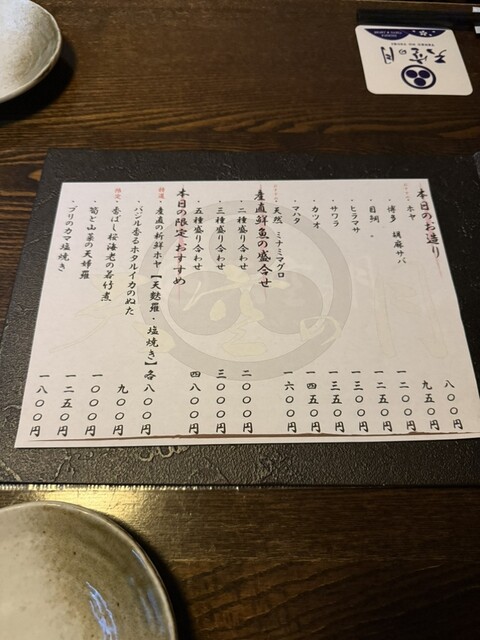 本日のお造り
・ホヤ 八〇〇円
・博多 胡麻サバ 九五〇円
一二〇〇円
・ヒラマサ 一二五〇円
・サワラ 一三五〇円
・カツオ 一三五〇円
・マハタ 一四五〇円
・天然 ミナミマグロ 一六〇〇円
産直鮮魚の盛合せ
・二種盛り合わせ 二〇〇〇円
・三種盛り合わせ 三〇〇〇円
・五種盛り合わせ 四八〇〇円
本日の限定おすすめ
・産直の新鮮ホヤ【天麩羅・塩焼き】各八〇〇円
・バジル香るホタルイカのぬた 九〇〇円
限定・香ばし桜海老の若竹煮 一〇〇〇円
・筍と山菜の天婦羅 一二五〇円
・ブリのカマ塩焼き 一八〇〇円